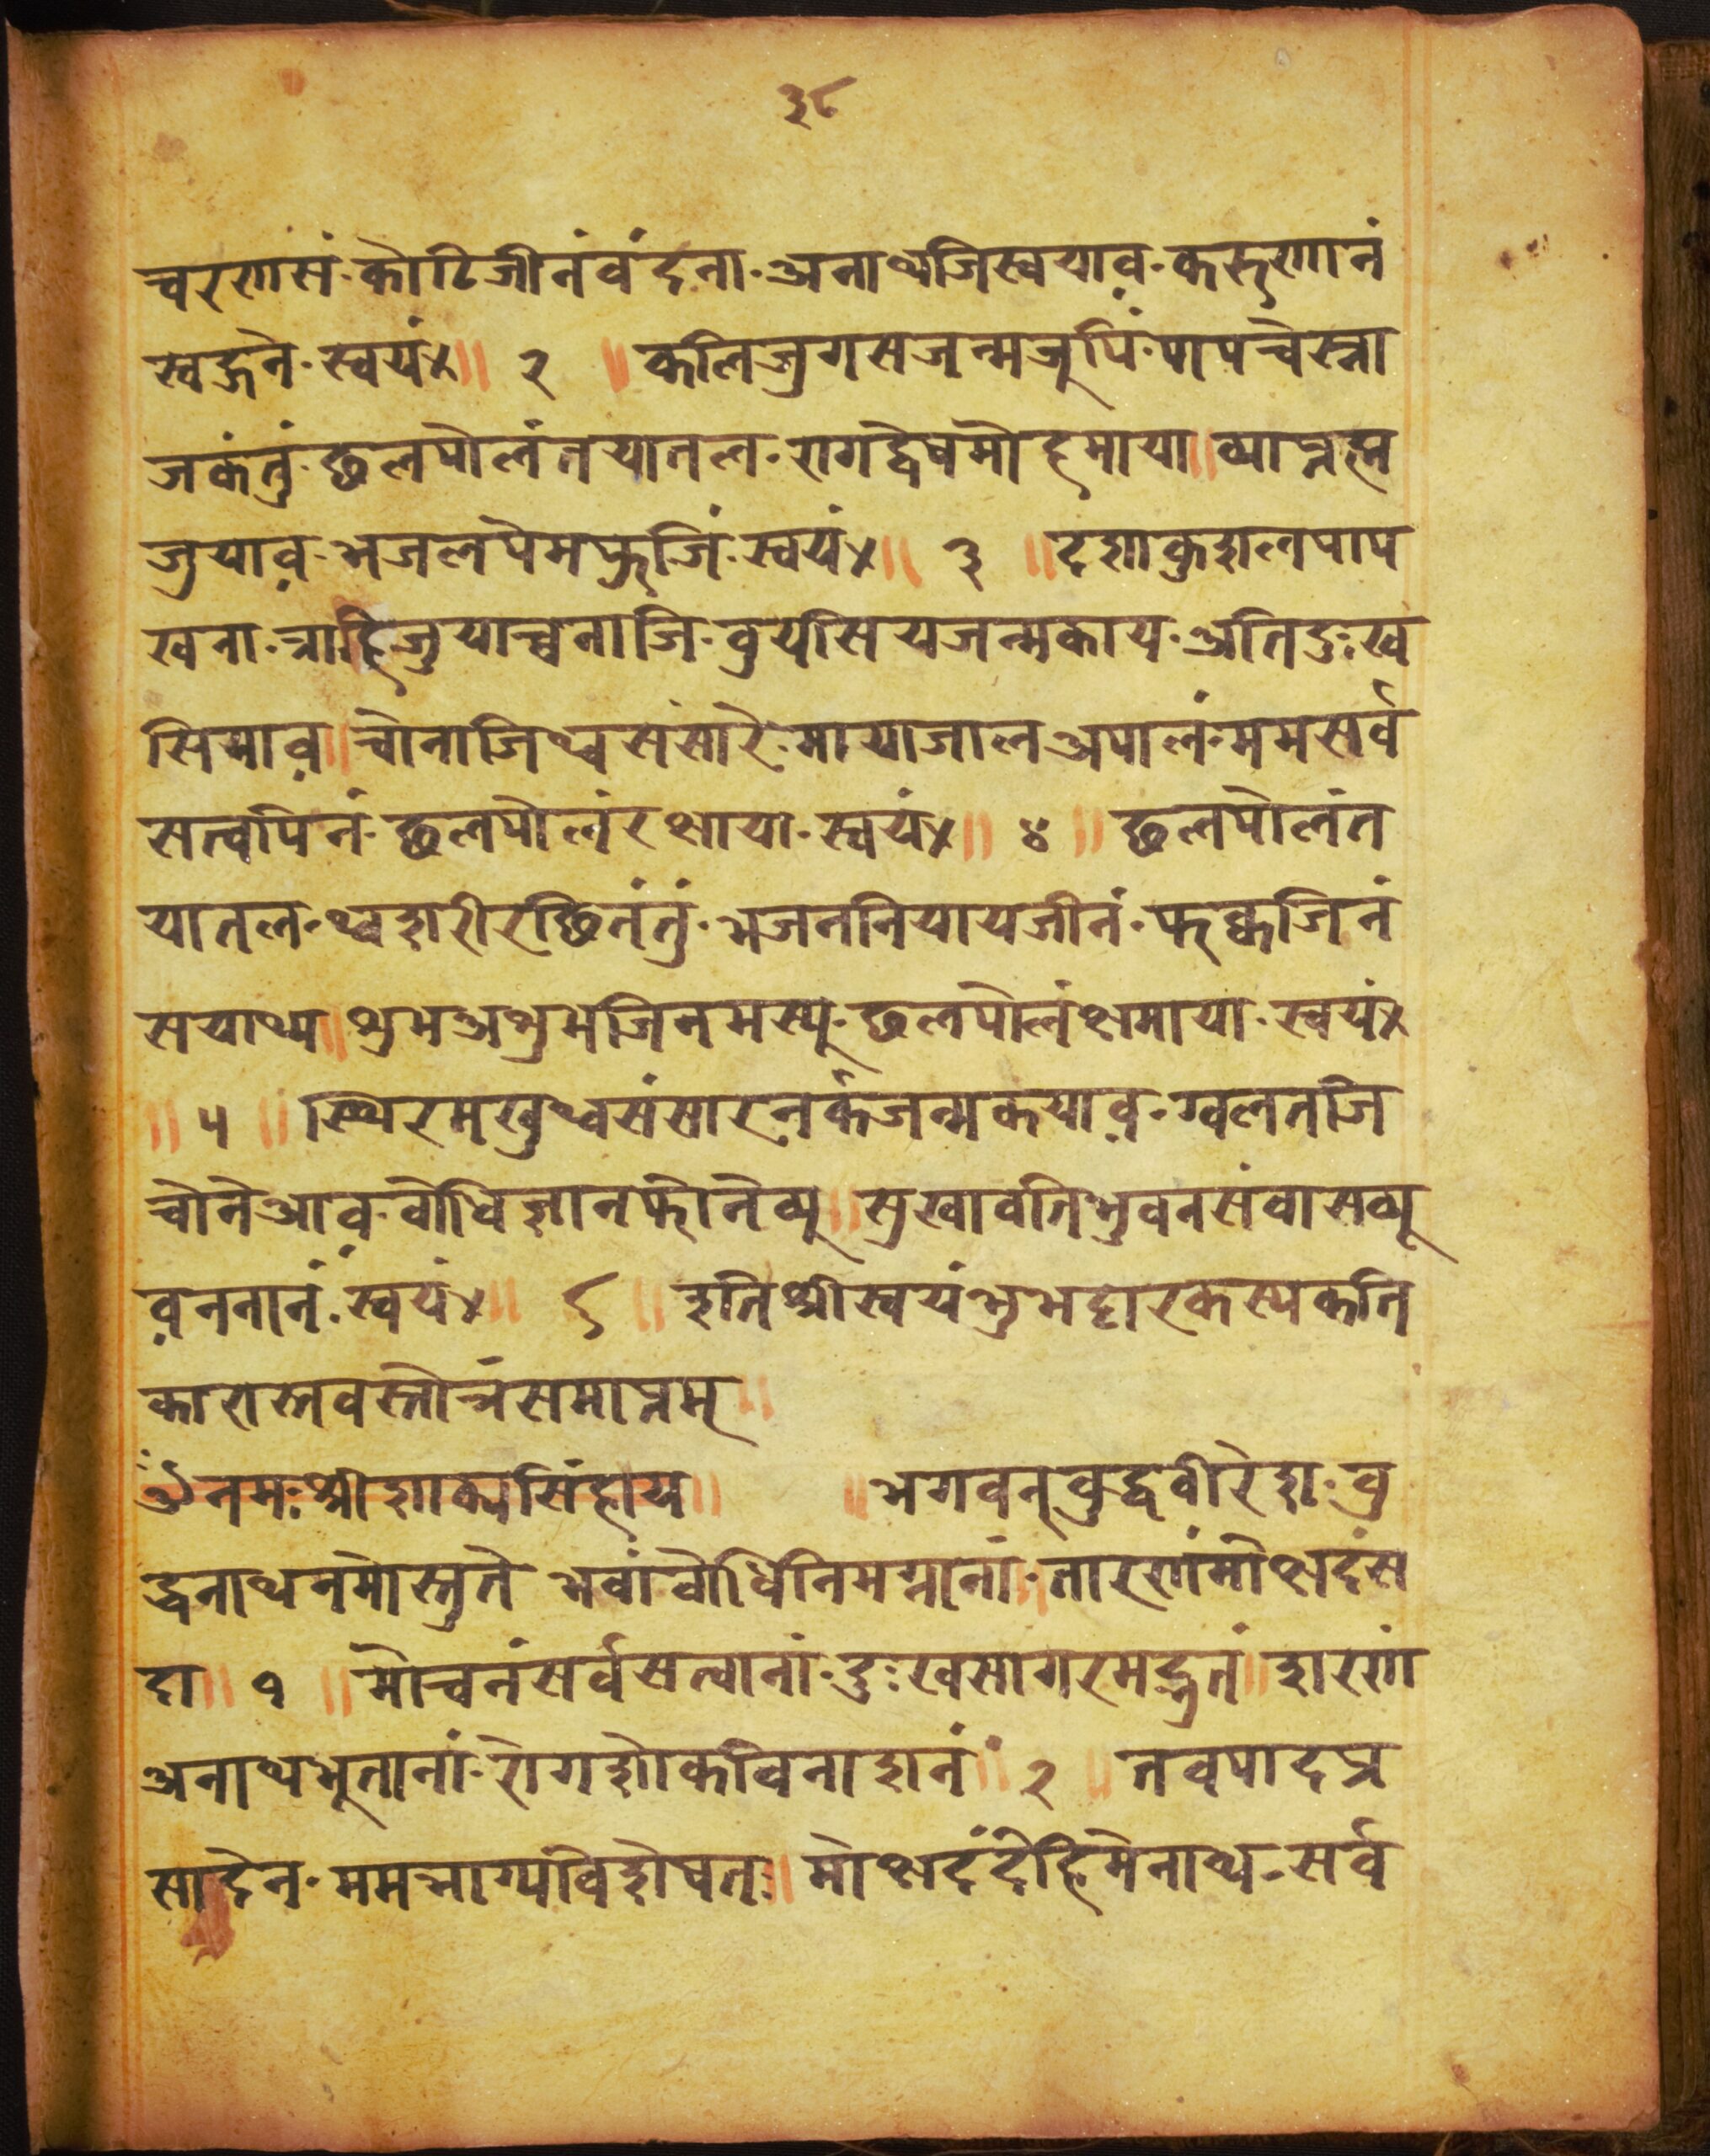 ३८
चरणसं·कोटिजीनंवंदना·अनाथ्यजिस्वयाव़·करुणानं
स्वहुने·स्वयं४॥ २ ॥ कलिजुगसजन्मजूपिं·पापचेस्ना
जकंतुं·छलपोलंतयातल·रागद्वेषमोहमाया॥व्याप्तह्म
जुयाव़·भजलपेमफुजिं·स्वयं४॥ ३ ॥ दशाकुशलपाप
खना·त्राहिजुयाच्वनाजि·वुयसियजन्मकाय·अतिदुःख
सियाव़॥चोनाजिथ्वसंसारे·मायाजालअपालं·ममसर्व
सत्वपिनं·छलपोलंरक्षाया·स्वयं४॥ ४ ॥ छलपोलंत
यातल·थ्वशरीरछितंतुं·भजननियायजीनं·फक्वजिनं
सयाथ्य॥शुभअशुभजिनमस्यू·छलपोलंक्षमाया·स्वयं४
॥ ५ ॥ स्थिरमखुथ्वसंसारनर्कजन्मकयाव़·ग्वलतजि
चोनेआव़·वोधिज्ञानफोनेव्यु॥सुखावतिभुवनसंवासव्यू
व़ननानं·स्वयं४॥ ६ ॥ इतिश्रीस्वयंभुभट्टारकस्यकति
कारास्तवस्तोत्रंसमाप्तम्॥
ॐनमःश्रीशाक्यसिंहाय॥ ॥भगवन्वुद्धवीरेश·वु
द्धनाथनमोस्तुते भवांवोधिनिमग्नानां·तारणंमोक्षदंस
दा॥ १ ॥ मोचनंसर्वसत्वानां·दुःखसागरमद्भुतं॥शरणं
अनाथभूतानां·रोगशोकविनाशनं॥ २ ॥ तवपादप्र
सादेन·ममभाग्यविशेषतः॥मोक्षदंदेहिमेनाथ·सर्व